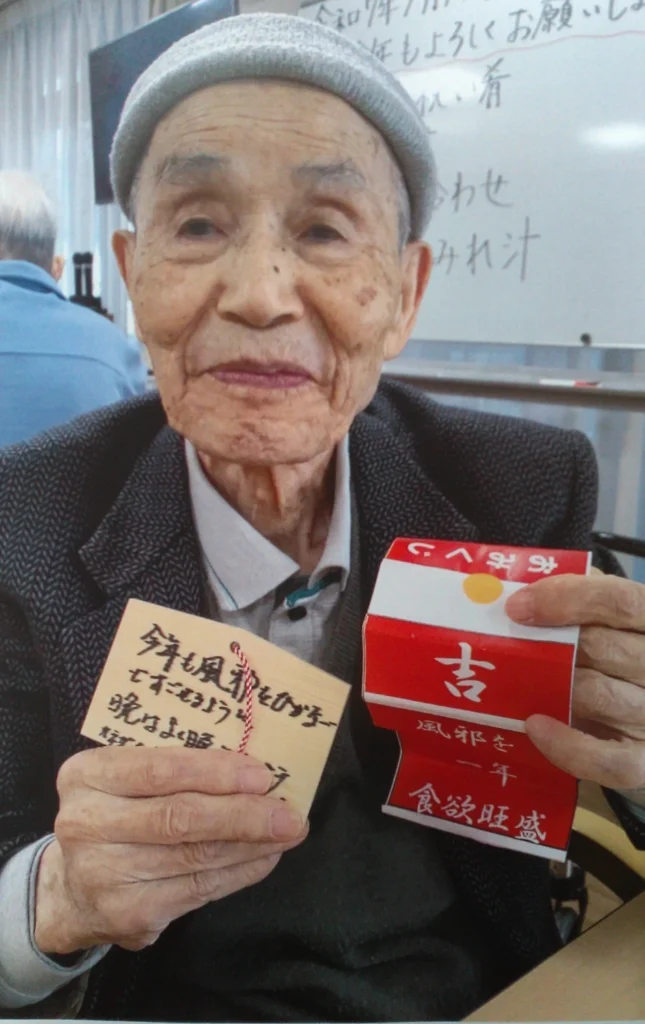 令和7年1月
年もよろしくお願いし
い肴
合わせ
みれ汁
今年も風邪をひかず
ですごせるように
晩はよく晩
おみくじ
吉
風邪を
一年
食欲旺盛